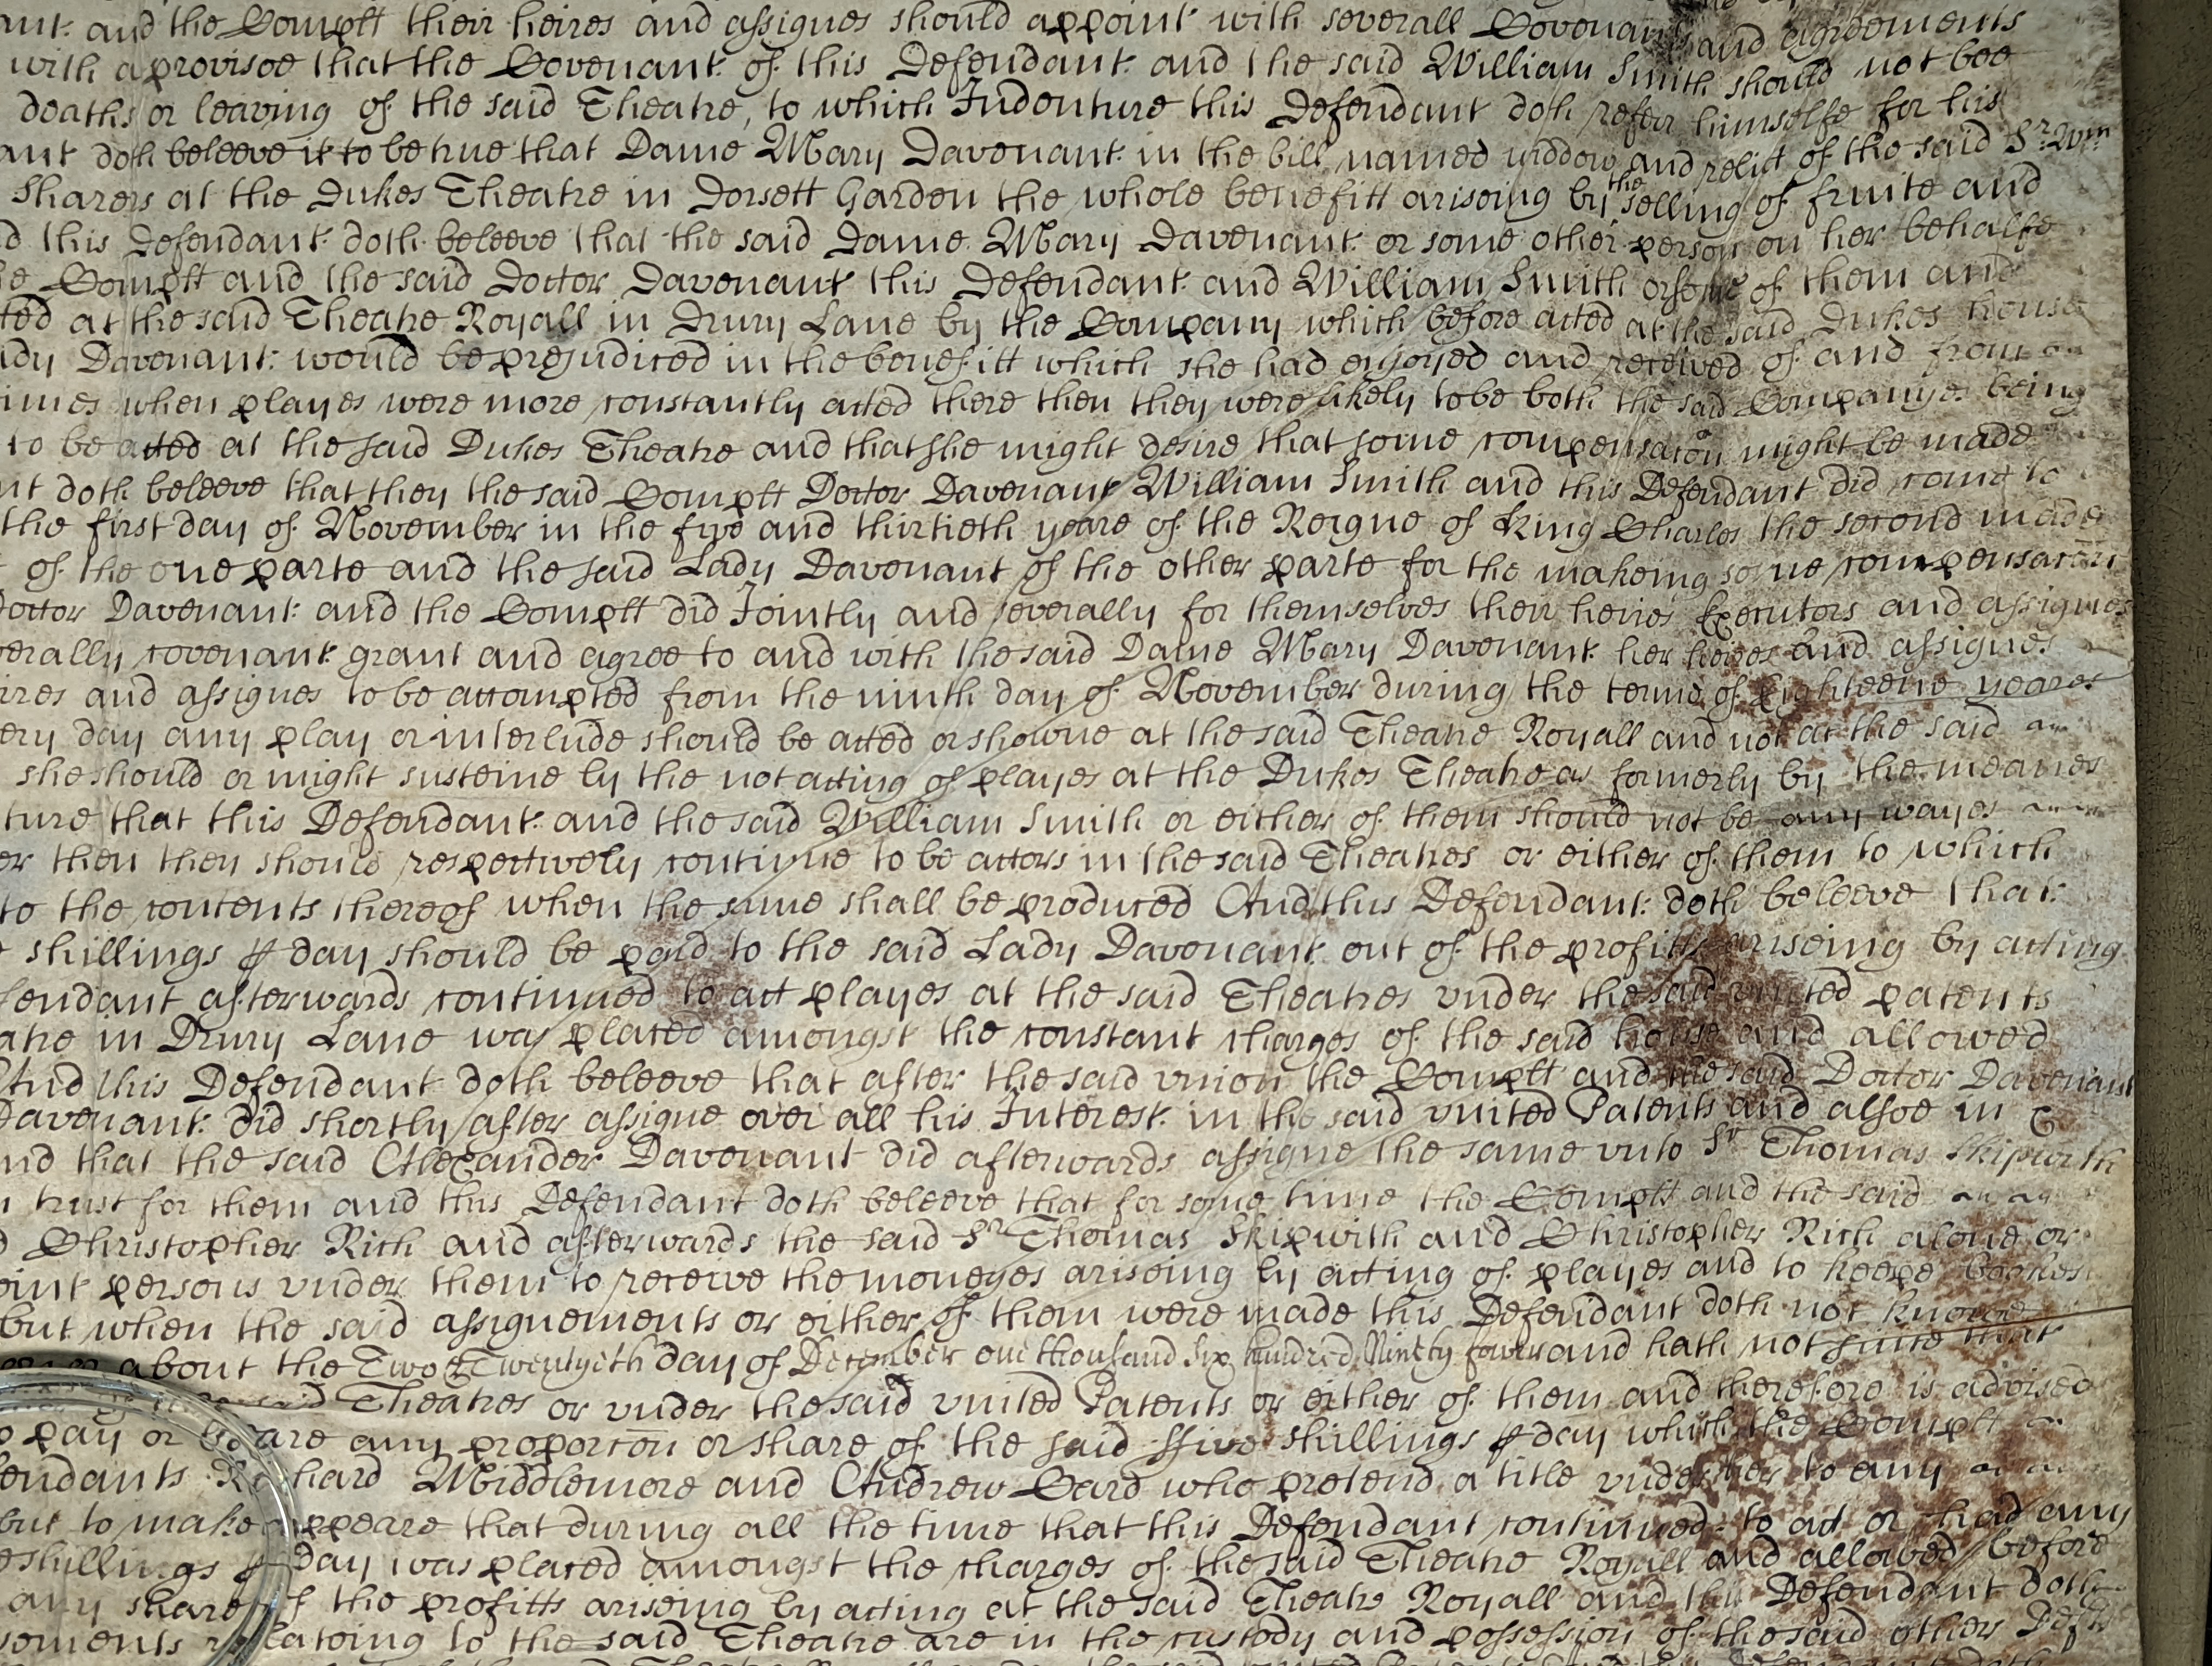 and the Complt their heires and assignes should appoint with severall Covenants and agreements
with a provisoe that the Covenant of this Defendant and the said William Smith should not bee
deaths or leaving of the said Theatre, to which Indenture this Defendant doth refer himselfe for his
doth beleeve it to be true that Dame Mary Davenant in the bill named widdow and relict of the said Sr Wm
Sharers at the Dukes Theatre in Dorsett Garden the whole benefitt ariseing by the selling of fruite and
this Defendant doth beleeve that the said Dame Mary Davenant or some other person on her behalfe
Complt and the said Doctor Davenant this Defendant and William Smith or some of them and
at the said Theatre Royall in Drury Lane by the Company which before acted at the said Dukes house
Davenant would be prejudiced in the benefitt which she had enjoyed and received of and from
when playes were more constantly acted there then they were likely to be both the said Companyes being
to be acted at the said Dukes Theatre and that she might desire that some compensacon might be made
doth beleeve that they the said Complt Doctor Davenant William Smith and this Defendant did come to
the first day of November in the five and thirtieth yeare of the Reigne of King Charles the second made
of the one parte and the said Lady Davenant of the other parte for the makeing some compensacon
Doctor Davenant and the Complt did Jointly and severally for themselves their heires Executors and assignes
covenant grant and agree to and with the said Dame Mary Davenant her heires and assignes
and assignes to be accompted from the ninth day of November during the terme of Eighteene yeares
day any play or interlude should be acted or showne at the said Theatre Royall and not at the said
she should or might susteine by the not acting of playes at the Dukes Theatre as formerly by the meanes
that this Defendant and the said William Smith or either of them should not be any wayes
then they should respectively continue to be actors in the said Theatres or either of them to which
to the contents thereof when the same shall be produced And this Defendant doth beleeve that
shillings p day should be paid to the said Lady Davenant out of the profitts ariseing by acting
afterwards continued to act playes at the said Theatres under the said united patents
in Drury Lane was placed amongst the constant charges of the said house and allowed
And this Defendant doth beleeve that after the said union the Complt and the said Doctor Davenant
Davenant did shortly after assigne over all his Interest in the said united Patents and alsoe in
that the said Alexander Davenant did afterwards assigne the same unto Sr Thomas Skipwith
trust for them and this Defendant doth beleeve that for some time the Complt and the said
Christopher Rich and afterwards the said Sr Thomas Skipwith and Christopher Rich alone or
persons under them to receive the moneyes ariseing by acting of playes and to keepe bookes
but when the said assignements or either of them were made this Defendant doth not knowe
about the Two & Twentyeth day of December one thousand six hundred Ninety fower and hath not since that
Theatres or under the said united Patents or either of them and therefore is advised
pay or beare any proporcon or share of the said ffive shillings p day which the Complt
Richard Middlemore and Andrew Card who pretend a title under her to any
but to make appeare that during all the time that this Defendant continued to act or had any
shillings p day was placed amongst the charges of the said Theatre Royall and allowed before
any share of the profitts ariseing by acting at the said Theatre Royall and this Defendant doth
relateing to the said Theatre are in the custody and possession of the said other